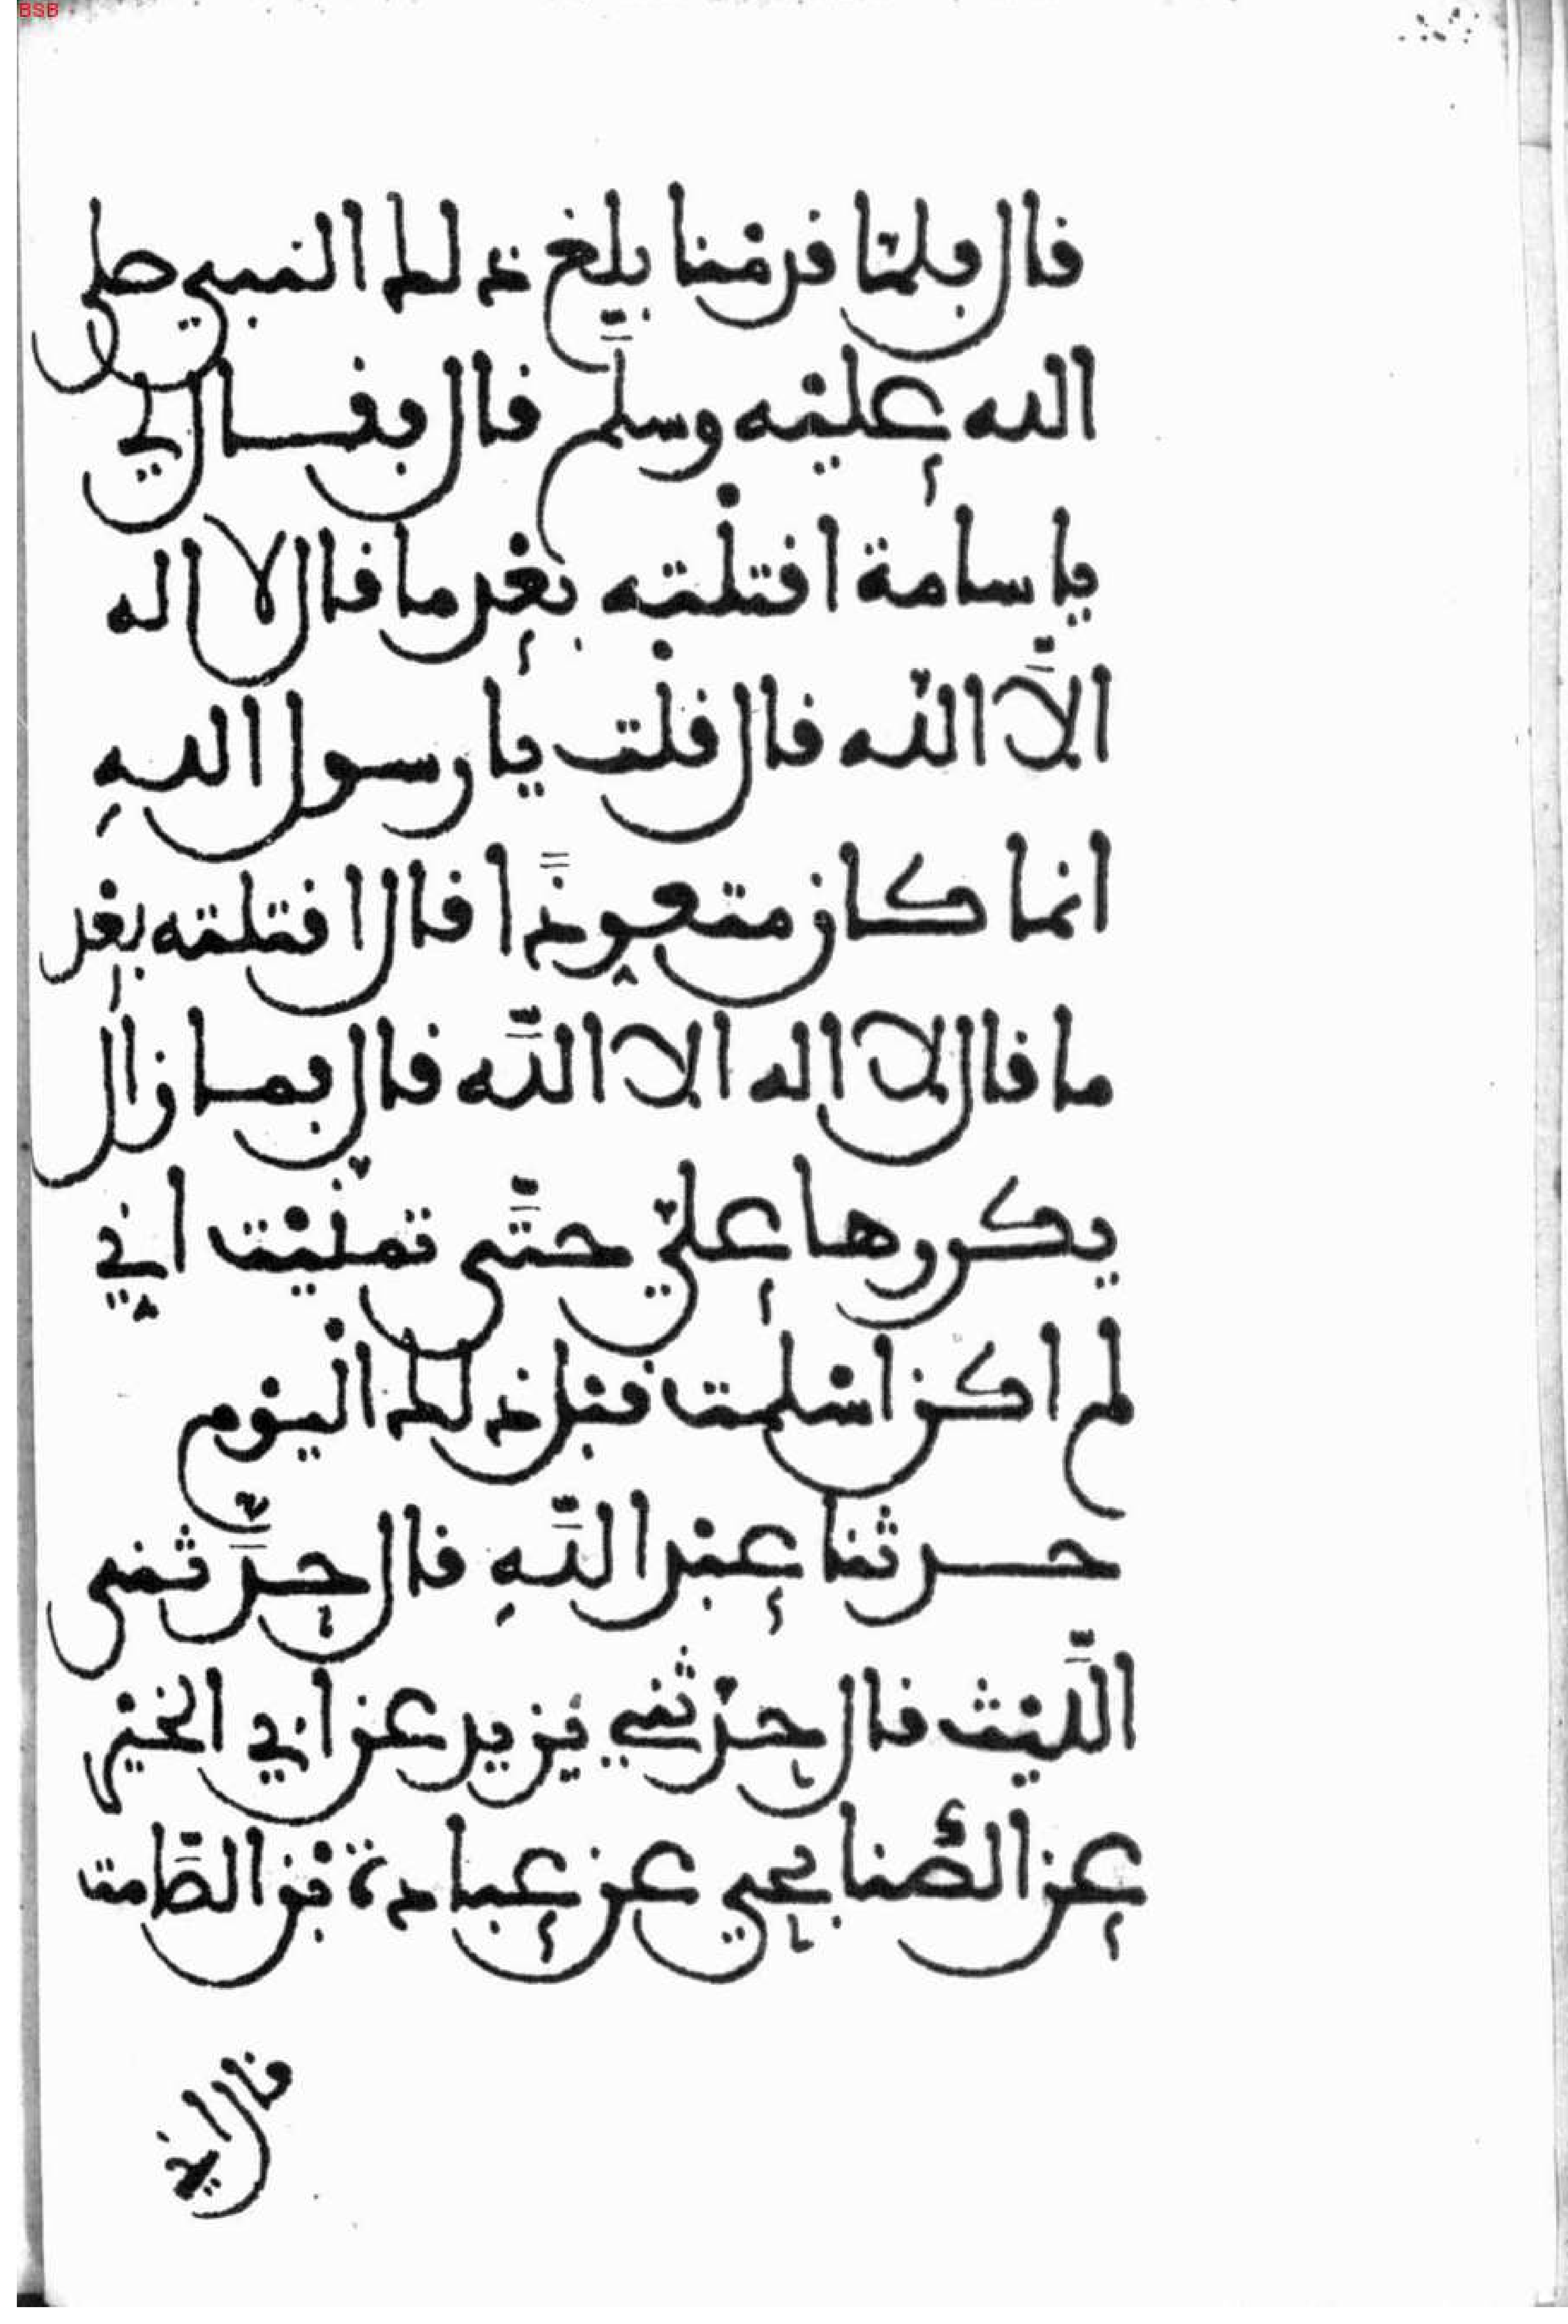 BSB
قال فلمّا قدمْنا بلغ ذلك النبي صلى
الله عليْه وسلّم قال فقال لي
يا سامة اقتلْته بعْد ما قال لا اله
الاّ الله قال قلْت يا رسول اللهِ
انما كان متعوِّذًا قال اقتلته بعْد
ما قال لا اله الا اللّه قال فما زال
يكررها عليّ حتّى تمنّيْت اني
لم اكن اسْلمت قبْل ذلك الْيوْم
حدثنا عبْد اللّهِ قال حدّثنى
اللّيْث قال حدّثني يزيد عن ابي الخيْر
عن الصُّنابحي عن عبادة بْن الصّامت
قال اني